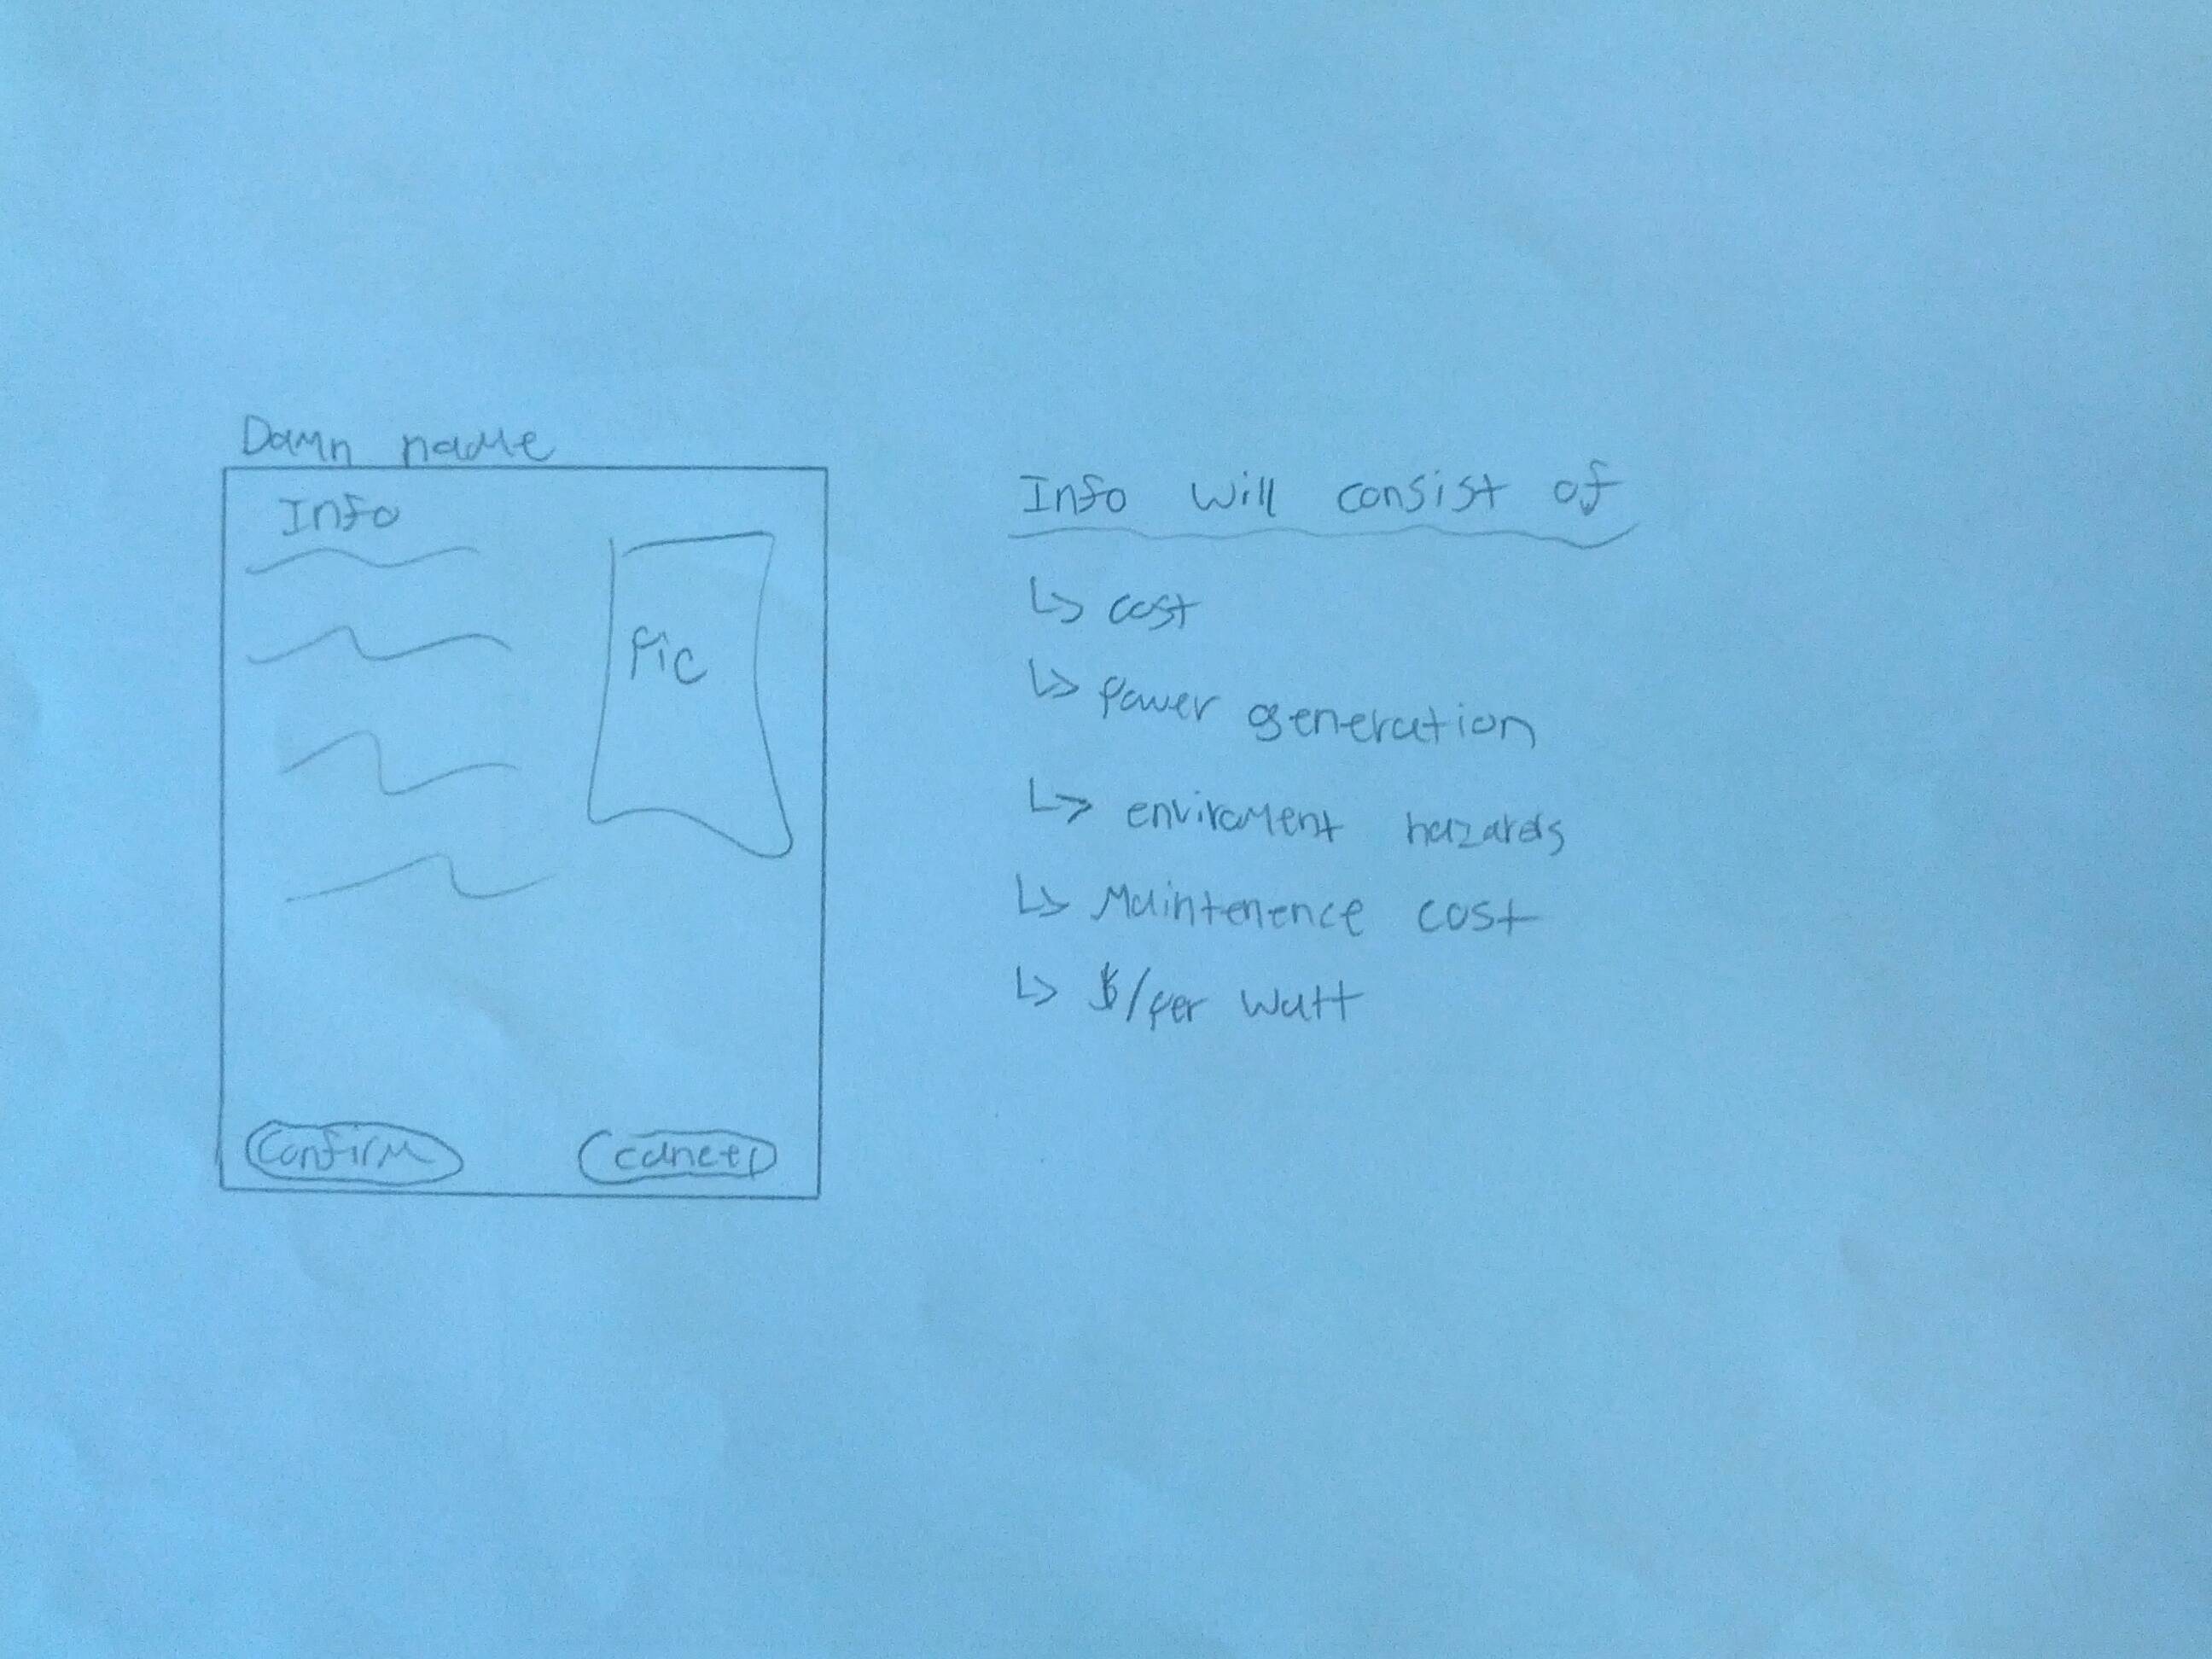 Damn name
Info
Pic
Confirm
Cancel
Info will consist of
↳ cost
↳ Power generation
↳ enviroment hazards
↳ Maintenence cost
↳ $/per watt